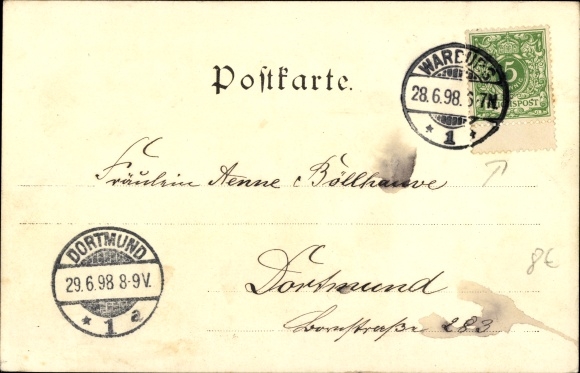 Postkarte.
WARBURG
28.6.98. 6-7N.
* 1 *
5
REICHSPOST
Fräulein Aenne Böllhauve
DORTMUND
29.6.98 8-9V.
* 1 a
8€
Dortmund
Bornstraße 283